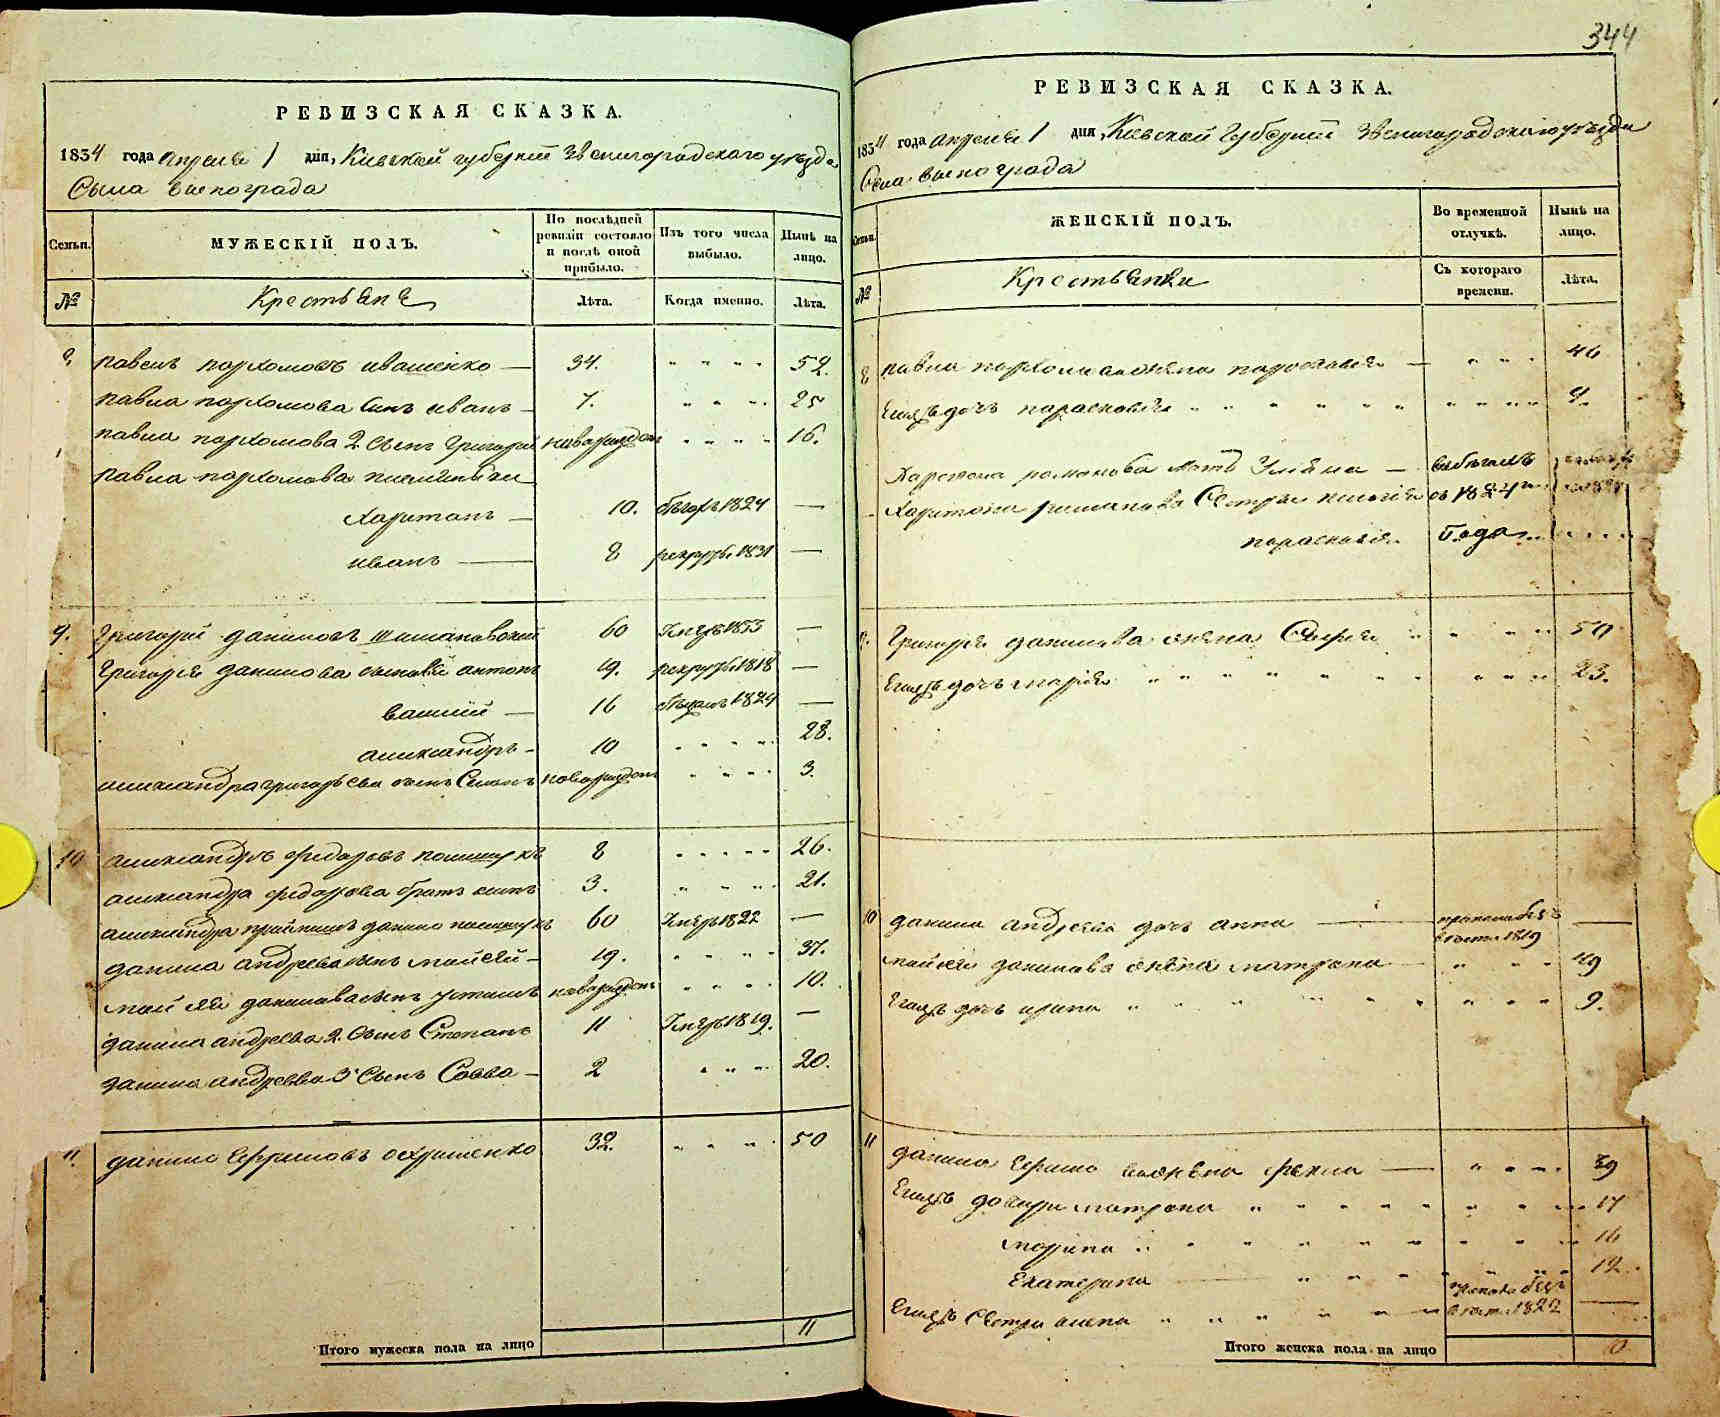 РЕВИЗСКАЯ СКАЗКА.
1834 года апреля 1 дня, Киевской губернии Звенигородского уезда
Села Винограда
Семьи.
МУЖЕСКІЙ ПОЛЪ.
По послѣдней ревизіи состояло и послѣ оной прибыло.
Изъ того числа выбыло.
Нынѣ на лицо.
№
Крестьяне
Лѣта.
Когда именно.
Лѣта.
павелъ пархомовъ ивашенко 34. 52.
павла пархомова сынъ иванъ 7. 25
павла пархомова 2 сынъ григорий новорожден 16.
павла пархомова племянники
харитонъ 10. бѣгахъ 1824 —
иванъ 8 рекрутъ 1831 —
9. Григорий даниловъ 60 1833 —
Григорія данилова сыновья антонъ 19. рекрутъ 1818 —
василій 16 1824 —
александръ 10 28.
александра григорьева сынъ Семенъ новорожден 3.
10 александръ федоровъ 8 26.
александра федорова братъ 3. 21.
александра данило 60 умеръ 1822 —
данила андреева сынъ мойсей 19. 37.
мойсея данилова сынъ устинъ новорожден 10.
данила андреева 2. сынъ Степанъ 11 умеръ 1819. —
данила андреева 3 сынъ Савва 2 20.
11. данило Ефимовъ 32. 50
Итого мужеска пола на лицо 11
344
РЕВИЗСКАЯ СКАЗКА.
1834 года апреля 1 дня, Киевской губернии Звенигородского уезда
Села Винограда
Семьи.
ЖЕНСКІЙ ПОЛЪ.
Во временной отлучкѣ.
Нынѣ на лицо.
№
Крестьянки
Съ котораго времени.
Лѣта.
8 павла пархомова жена парасковія 46
Егожъ дочь парасковія 9.
Харитона романова мать Уліана — въ бѣгахъ
Харитона романова Сестры съ 1824
парасковія года
9. Григорія данилова жена Софія 50
Егожъ дочь марія 23.
10 данила андреева дочь анна 1819 —
мойсея данилова жена матрона 49
Егожъ дочь ирина 9.
11 данила Ефимова жена фекла — 39
Егожъ дочери матрона 17
марина 16
Екатерина 12.
Егожъ Сестра 1822 —
Итого женска пола на лицо